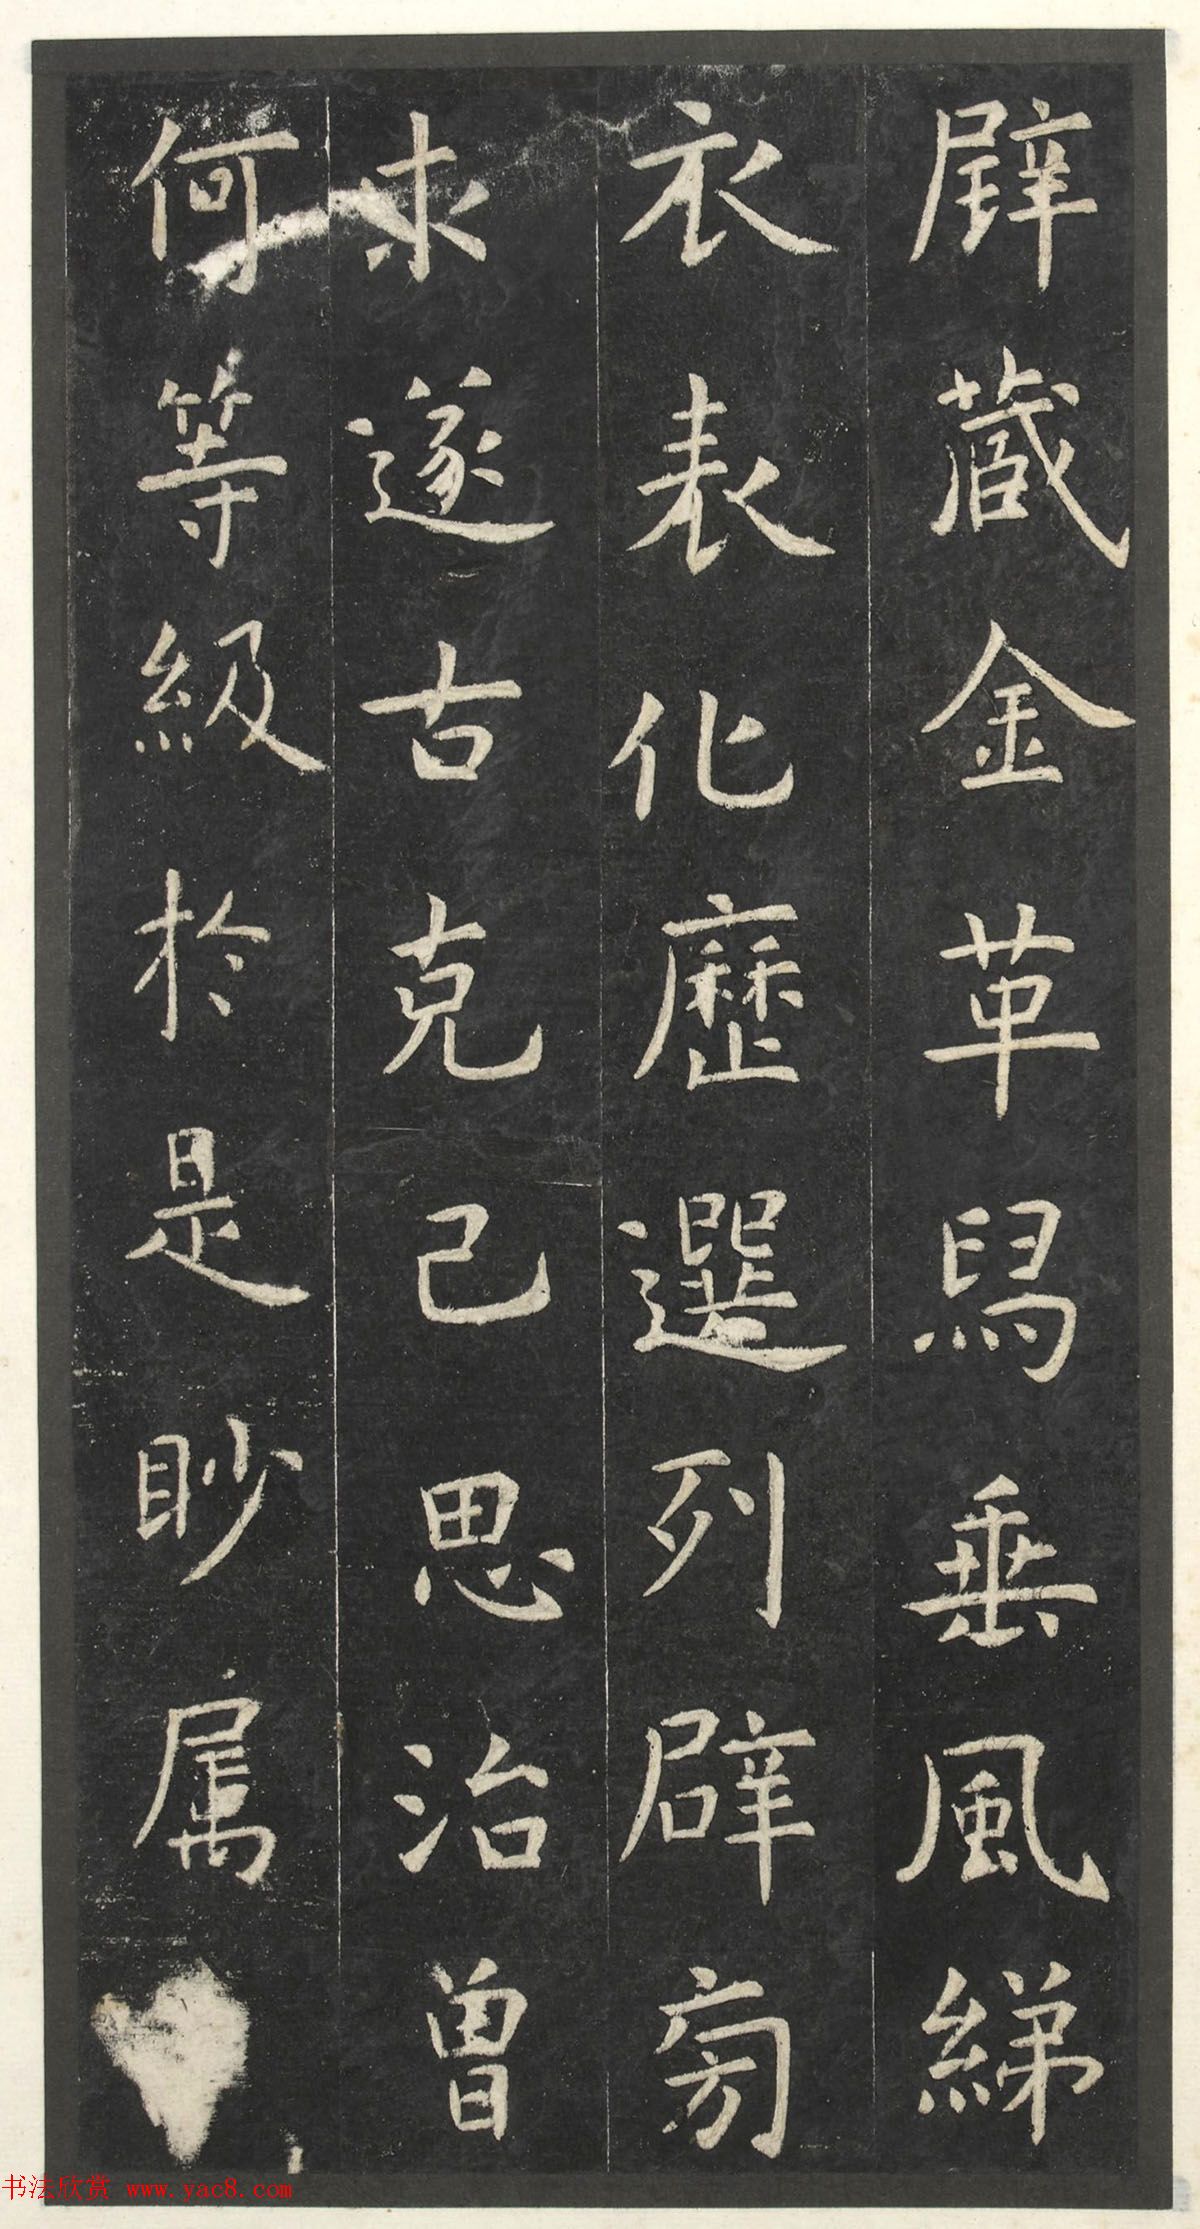 璧藏金革舄垂風綈
衣表化歷選列辟旁
求遂古克己思治曾
何等級於是眇屬
书法欣赏 www.yac8.com